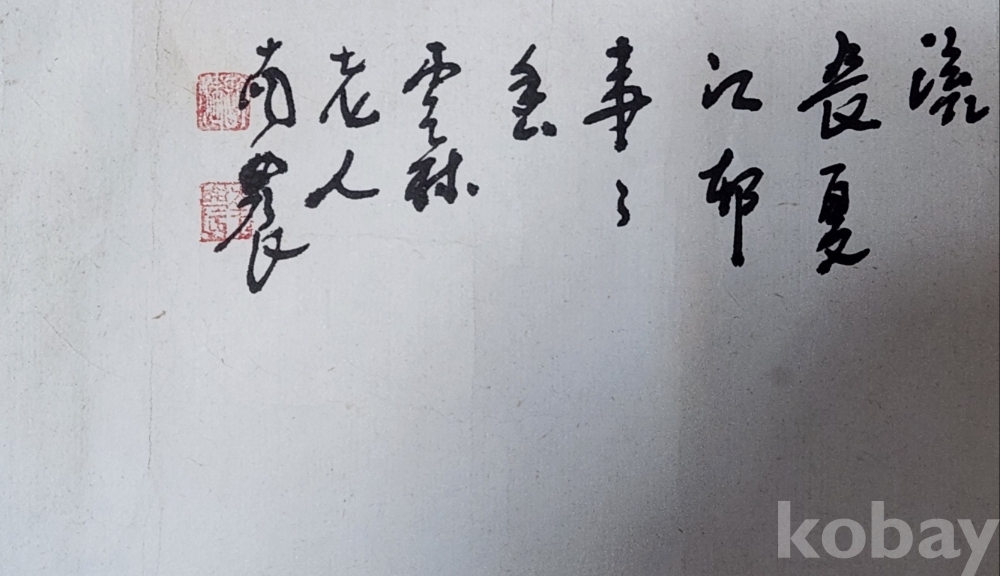 流
長夏
江邨
事々
幽
雲林
老人
南農
kobay